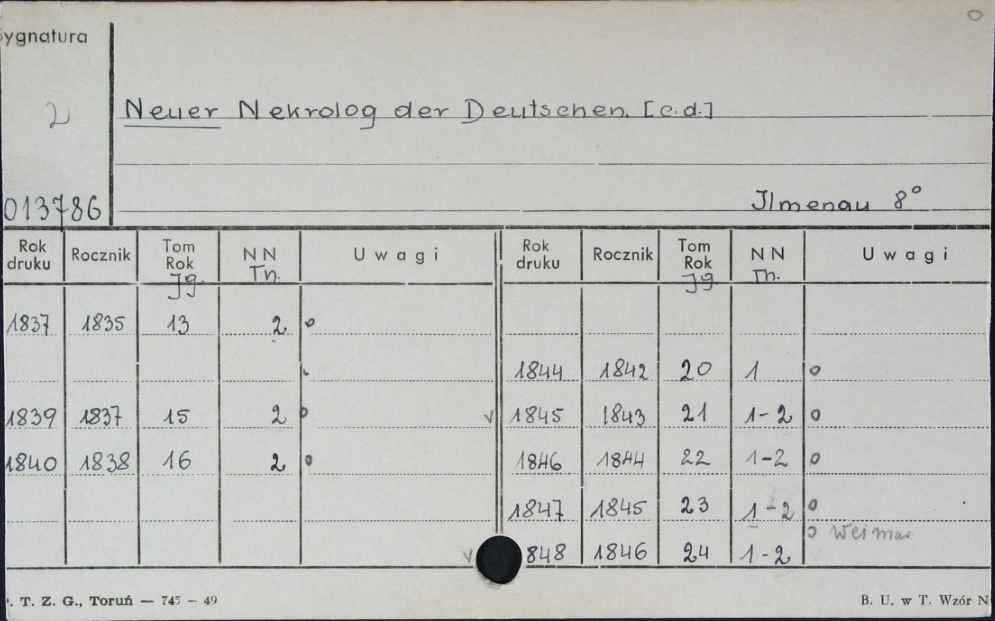 ygnatura
2
Neuer Nekrolog der Deutschen. [c.d.]
Ilmenau 8°
013786
Rok druku Rocznik Tom Rok Jg. NN Th. Uwagi Rok druku Rocznik Tom Rok Jg. NN Th. Uwagi
1837 1835 13 2 o
1844 1842 20 1 o
1839 1837 15 2 o v 1845 1843 21 1-2 o
1840 1838 16 2 o 1846 1844 22 1-2 o
1847 1845 23 1-2 o
o Weimar
v 848 1846 24 1-2
. T. Z. G., Toruń — 745 – 49
B. U. w T. Wzór N